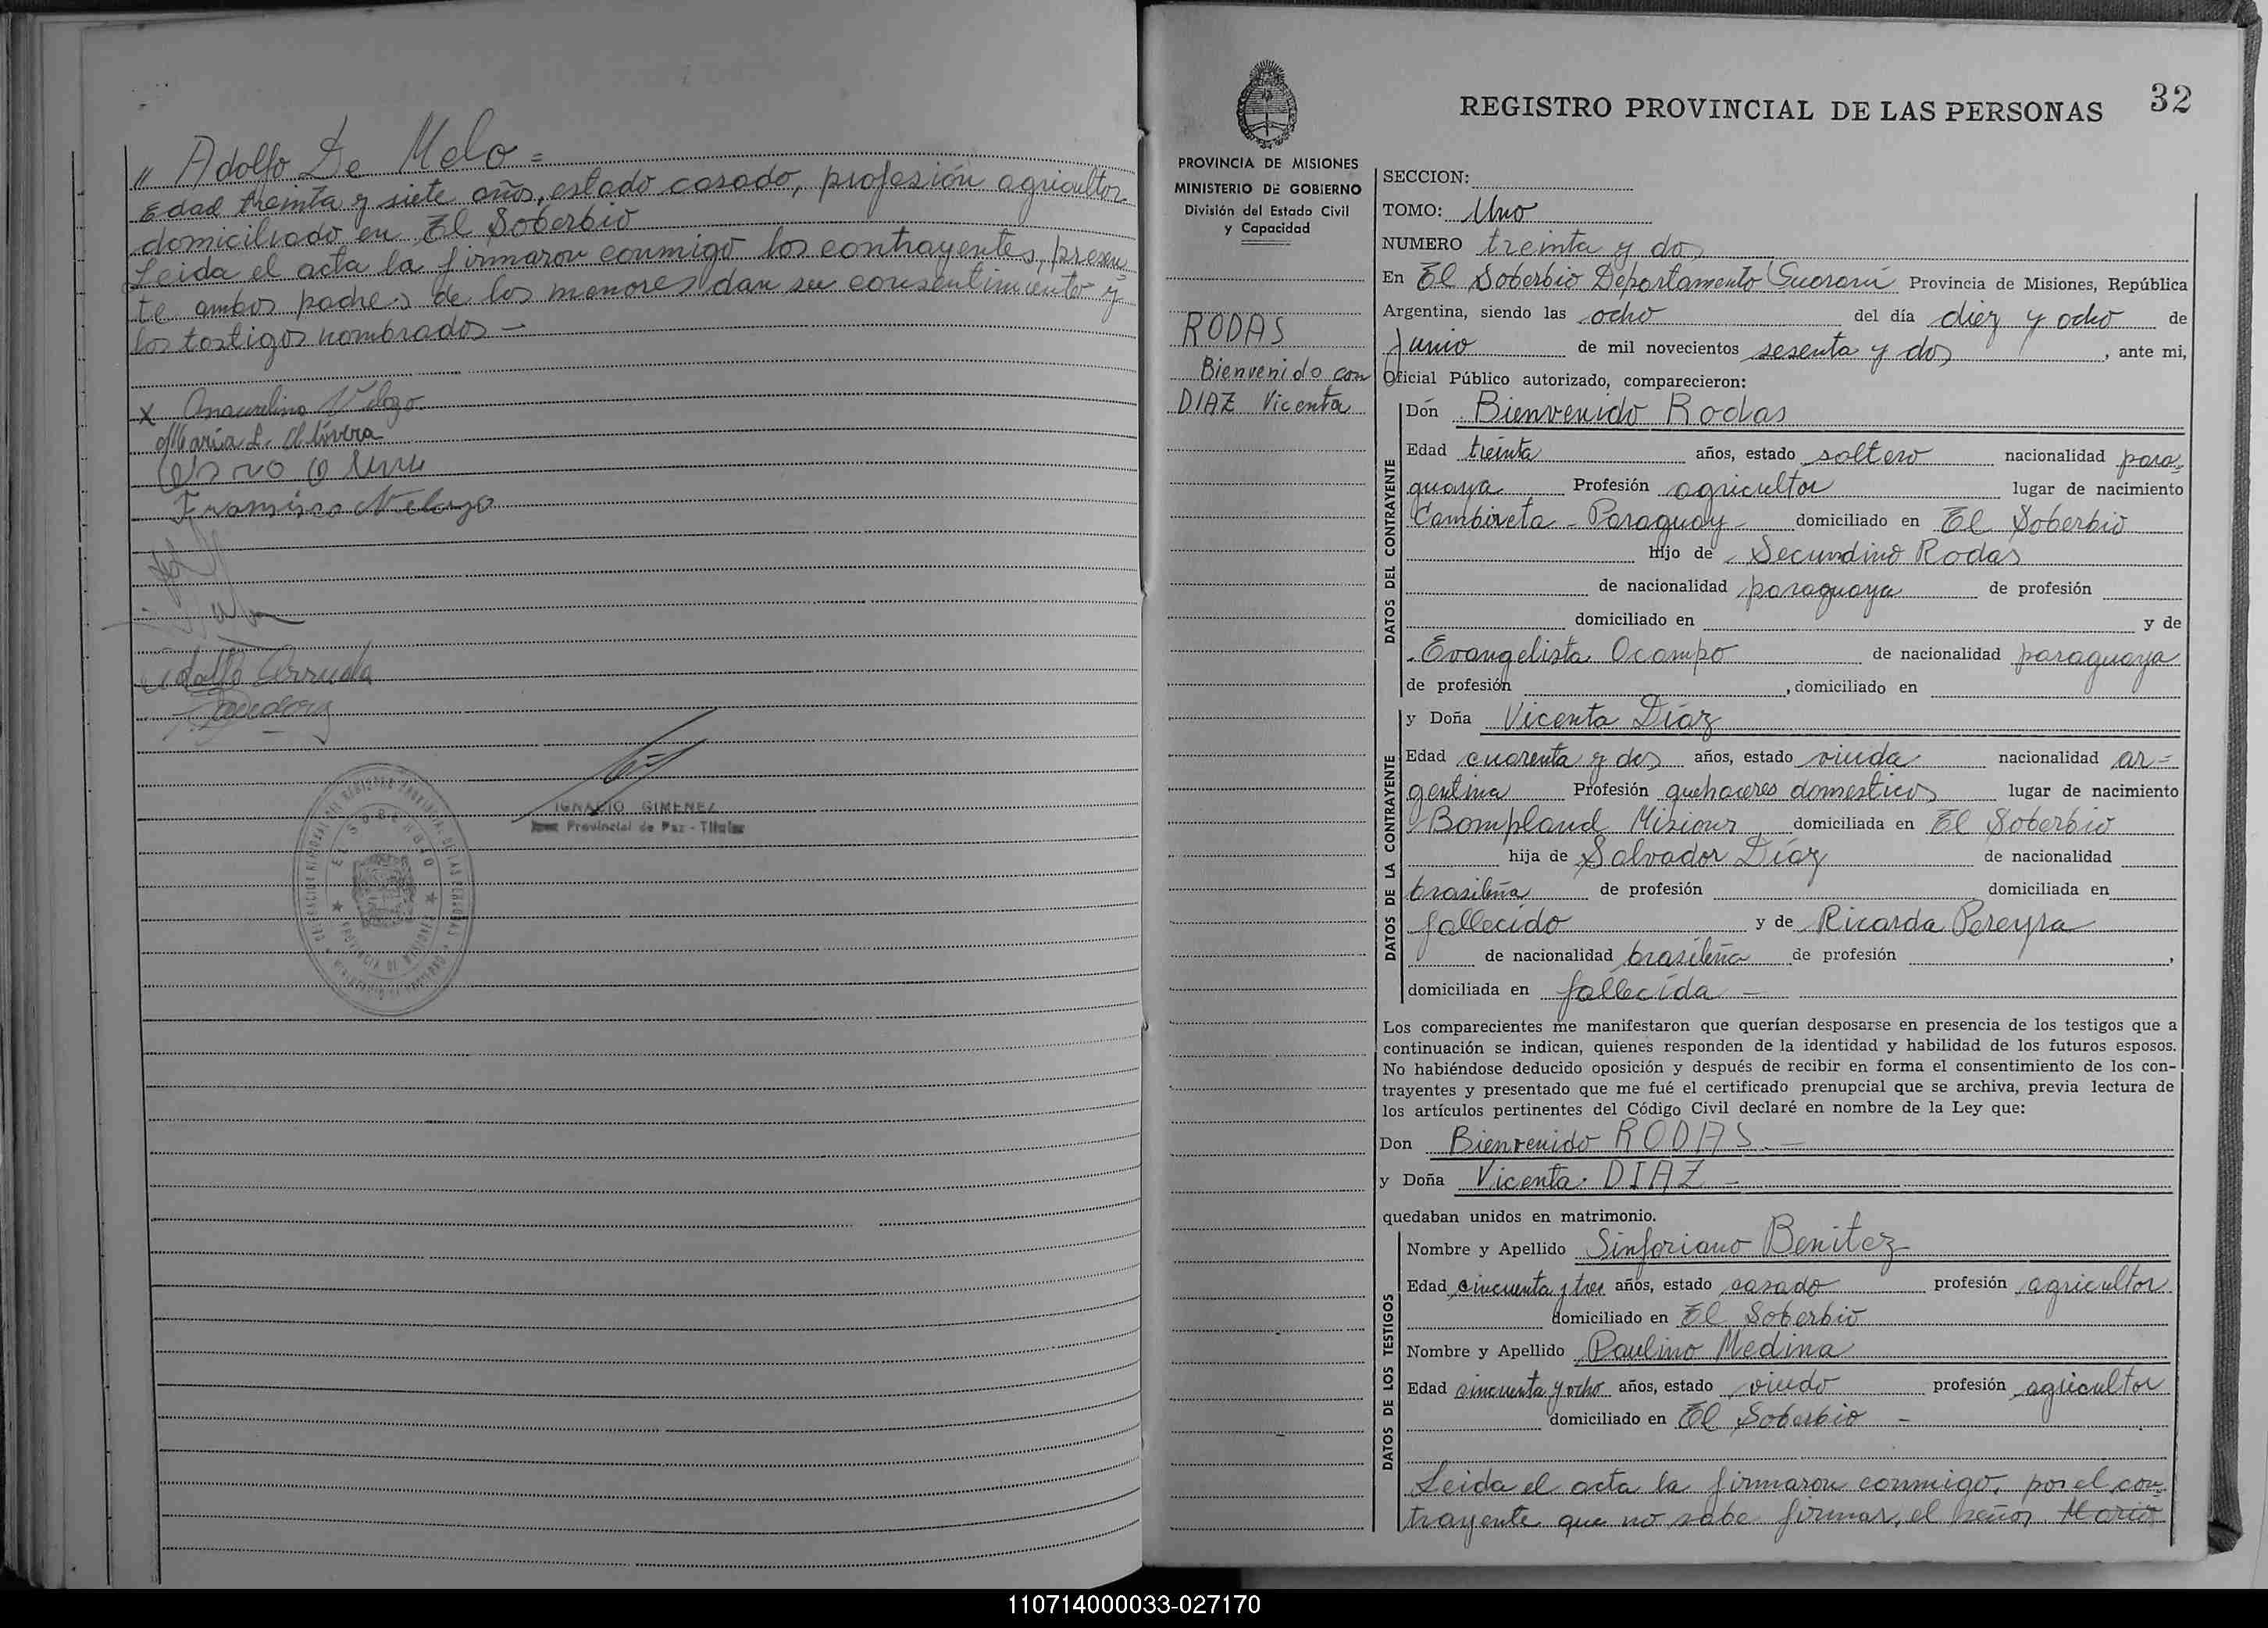 " Adolfo De Melo =
Edad treinta y siete años, estado casado, profesión agricultor
domiciliado en El Soberbio
Leida el acta la firmaron conmigo los contrayentes, presen
te ambos padres de los menores dan su consentimiento y
los testigos nombrados -
X
Maria L.
Francisco Velozo
Adolfo
IGNACIO GIMENEZ
Juez Provincial de Paz - Titular
EL SOBERBIO
32
REGISTRO PROVINCIAL DE LAS PERSONAS
PROVINCIA DE MISIONES
MINISTERIO DE GOBIERNO
División del Estado Civil
y Capacidad
RODAS
Bienvenido con
DIAZ Vicenta
SECCION:
TOMO: Uno
NUMERO treinta y dos
En El Soberbio Departamento Guaraní Provincia de Misiones, República
Argentina, siendo las ocho del día diez y ocho de
Junio de mil novecientos sesenta y dos, ante mi,
Oficial Público autorizado, comparecieron:
DATOS DEL CONTRAYENTE
Dón Bienvenido Rodas
Edad treinta años, estado soltero nacionalidad para=
guaya Profesión agricultor lugar de nacimiento
Cambireta - Paraguay - domiciliado en El Soberbio
hijo de Secundino Rodas
de nacionalidad paraguaya de profesión
domiciliado en y de
Evangelista Ocampo de nacionalidad paraguaya
de profesión , domiciliado en
DATOS DE LA CONTRAYENTE
y Doña Vicenta Díaz
Edad cuarenta y dos años, estado viuda nacionalidad ar=
gentina Profesión quehaceres domesticos lugar de nacimiento
Bompland Misiones domiciliada en El Soberbio
hija de Salvador Díaz de nacionalidad
brasileña de profesión domiciliada en
fallecido y de Ricarda Pereyra
de nacionalidad brasileña de profesión ,
domiciliada en fallecida -
Los comparecientes me manifestaron que querían desposarse en presencia de los testigos que a
continuación se indican, quienes responden de la identidad y habilidad de los futuros esposos.
No habiéndose deducido oposición y después de recibir en forma el consentimiento de los con-
trayentes y presentado que me fué el certificado prenupcial que se archiva, previa lectura de
los artículos pertinentes del Código Civil declaré en nombre de la Ley que:
Don Bienvenido RODAS -
y Doña Vicenta DIAZ -
quedaban unidos en matrimonio.
DATOS DE LOS TESTIGOS
Nombre y Apellido Sinforiano Benitez
Edad cincuenta y tres años, estado casado profesión agricultor
domiciliado en El Soberbio
Nombre y Apellido Paulino Medina
Edad cincuenta y ocho años, estado viudo profesión agricultor
domiciliado en El Soberbio -
Leida el acta la firmaron conmigo, por el con=
trayente que no sabe firmar, el señor Mario
110714000033-027170